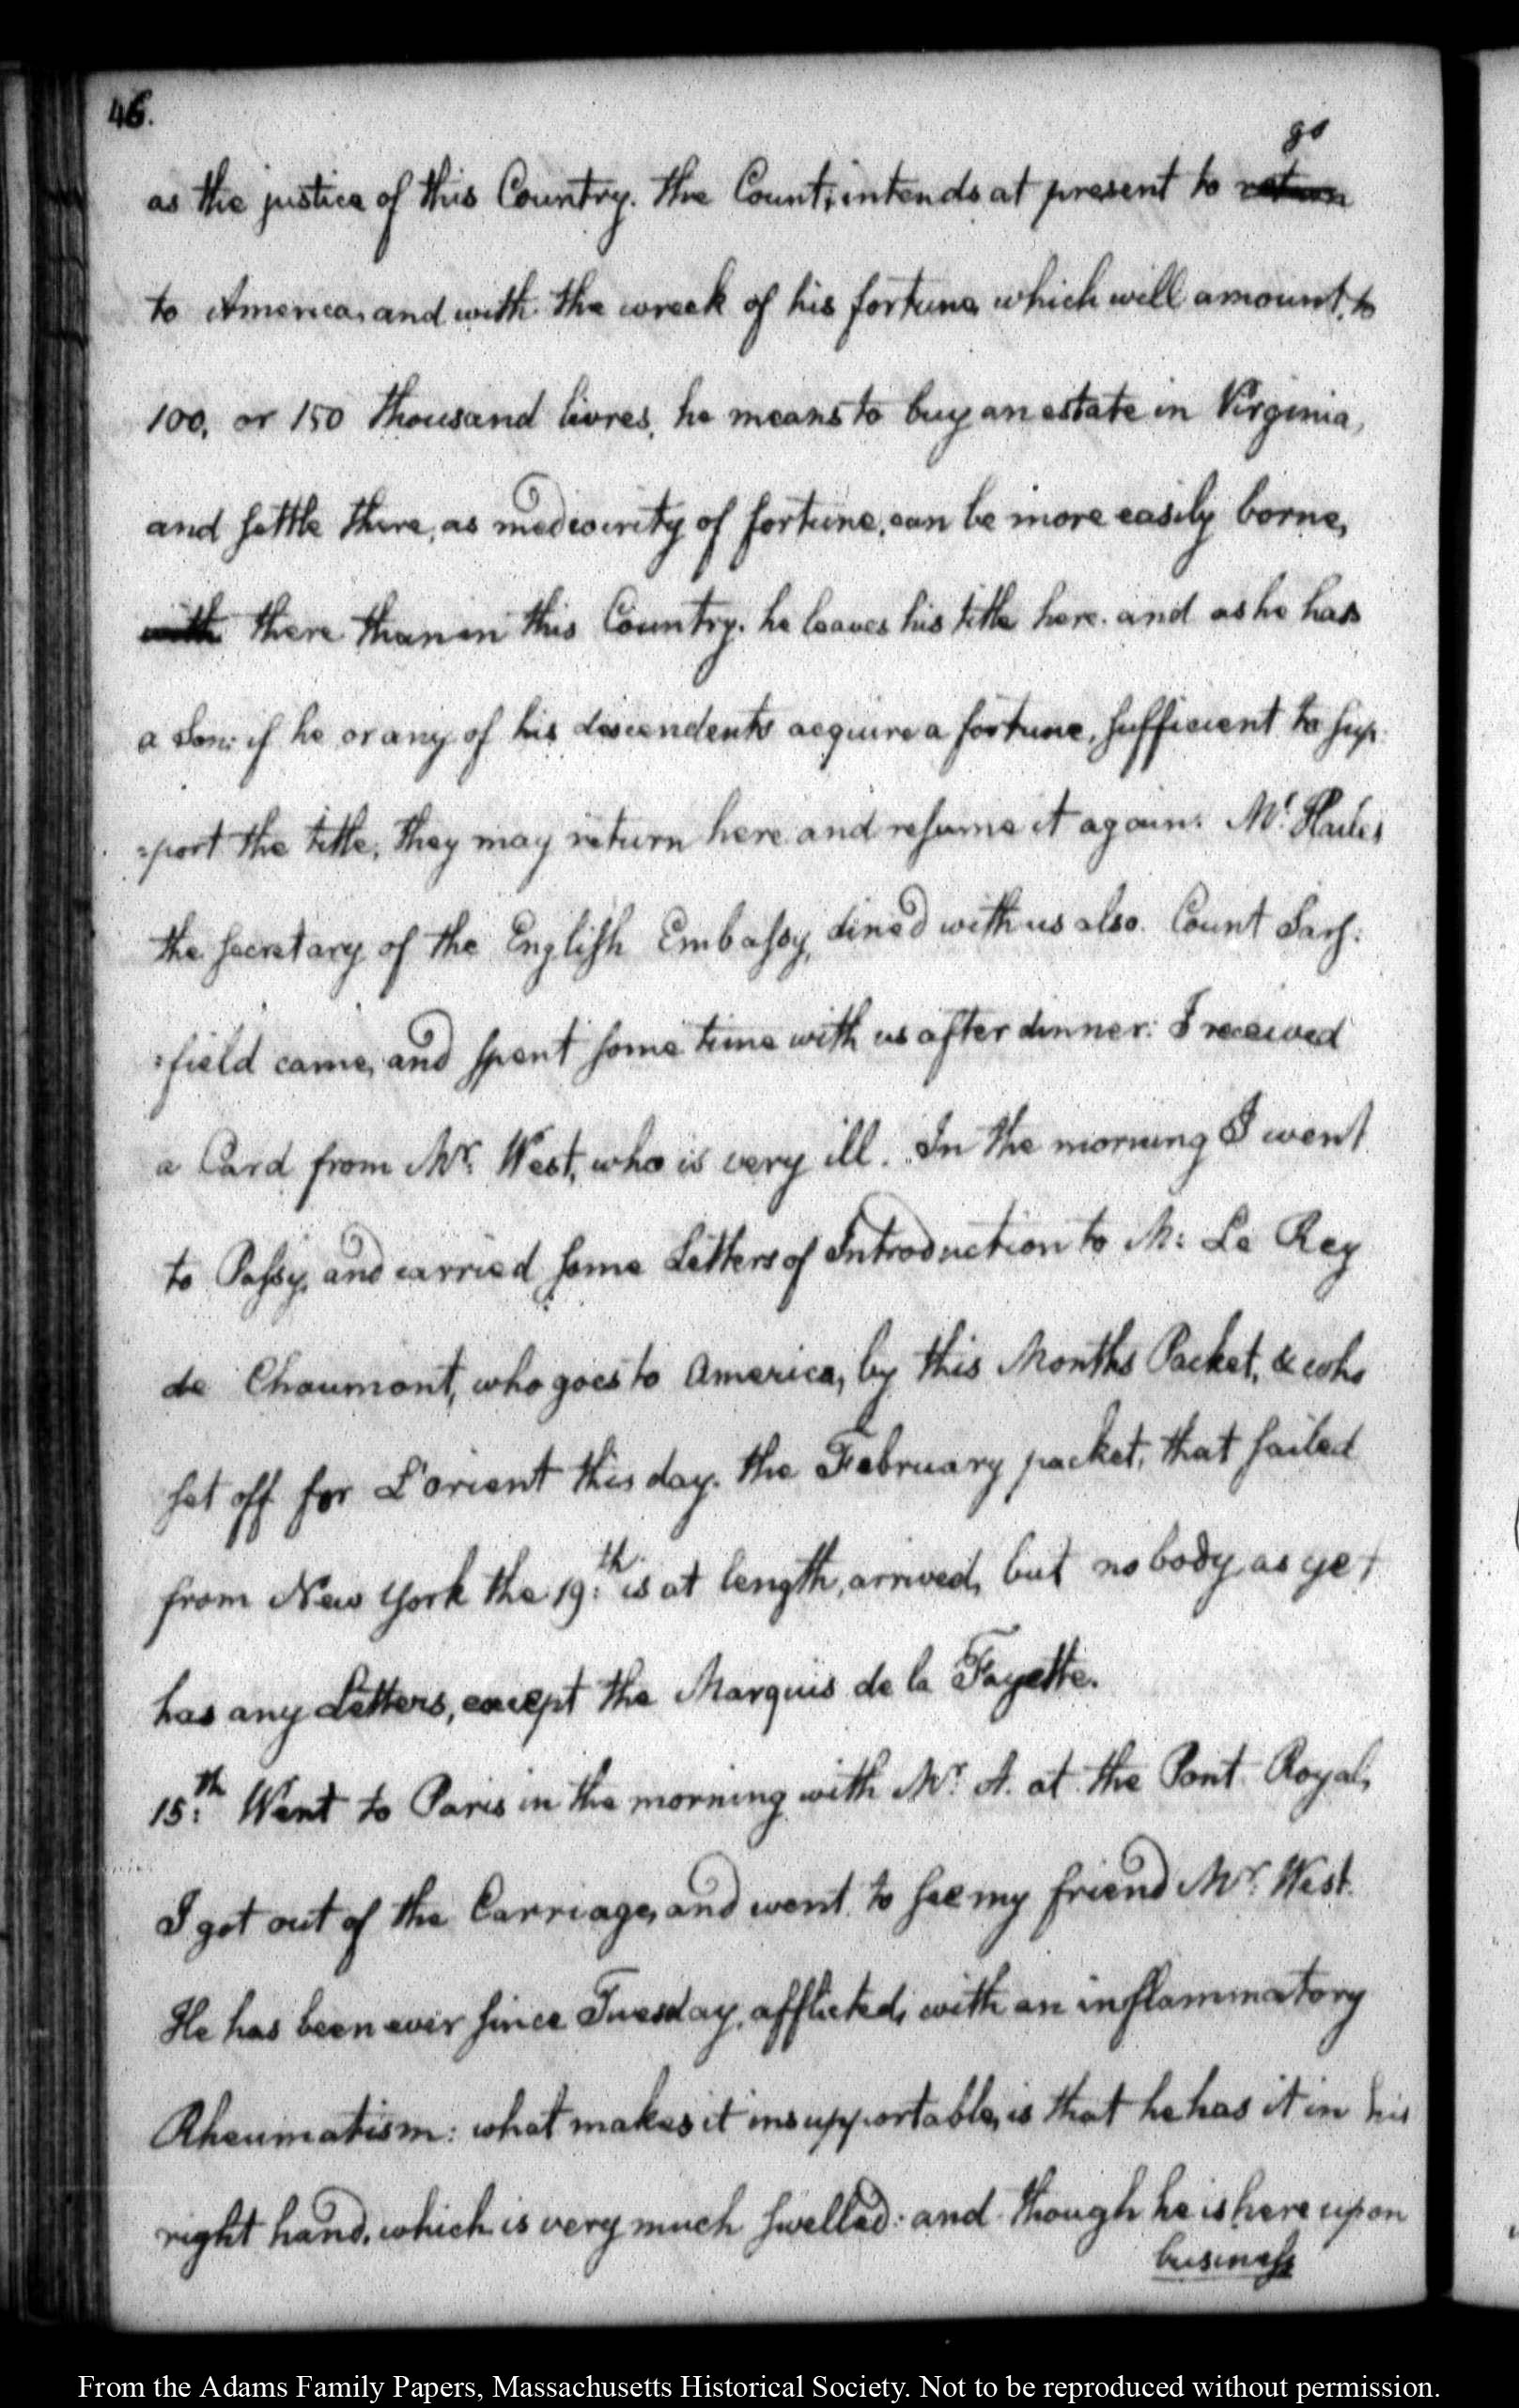 46.
go
as the justice of this Country. the Count, intends at present to return
to America, and with the wreck of his fortune, which will amount, to
100, or 150 thousand livres, he means to buy an estate in Virginia,
and settle there, as mediocrity of fortune, can be more easily borne,
with there than in this Country. he leaves his title here. and as he has
a Son: if he or any of his descendents acquire a fortune, sufficient to sup:
:port the title, they may return here and resume it again. Mr. Hailes
the secretary of the English Embassy, dined with us also. Count Sars:
:field came, and spent some time with us after dinner: I received
a Card from Mr. West, who is very ill. In the morning I went
to Passy, and carried some Letters of Introduction to M: Le Rey
de Chaumont, who goes to America, by this Months Packet, & who
set off for L'orient this day. the February packet, that sailed
from New York the 19:th is at length, arrived, but no body as yet
has any Letters, except the Marquis de la Fayette.
15:th Went to Paris in the morning with Mr. A. at the Pont Royal,
I got out of the Carriage, and went to see my friend Mr. West.
He has been ever since Tuesday, afflicted, with an inflammatory
Rheumatism: what makes it insupportable, is that he has it in his
right hand, which is very much swelled: and though he is here upon
business
From the Adams Family Papers, Massachusetts Historical Society. Not to be reproduced without permission.